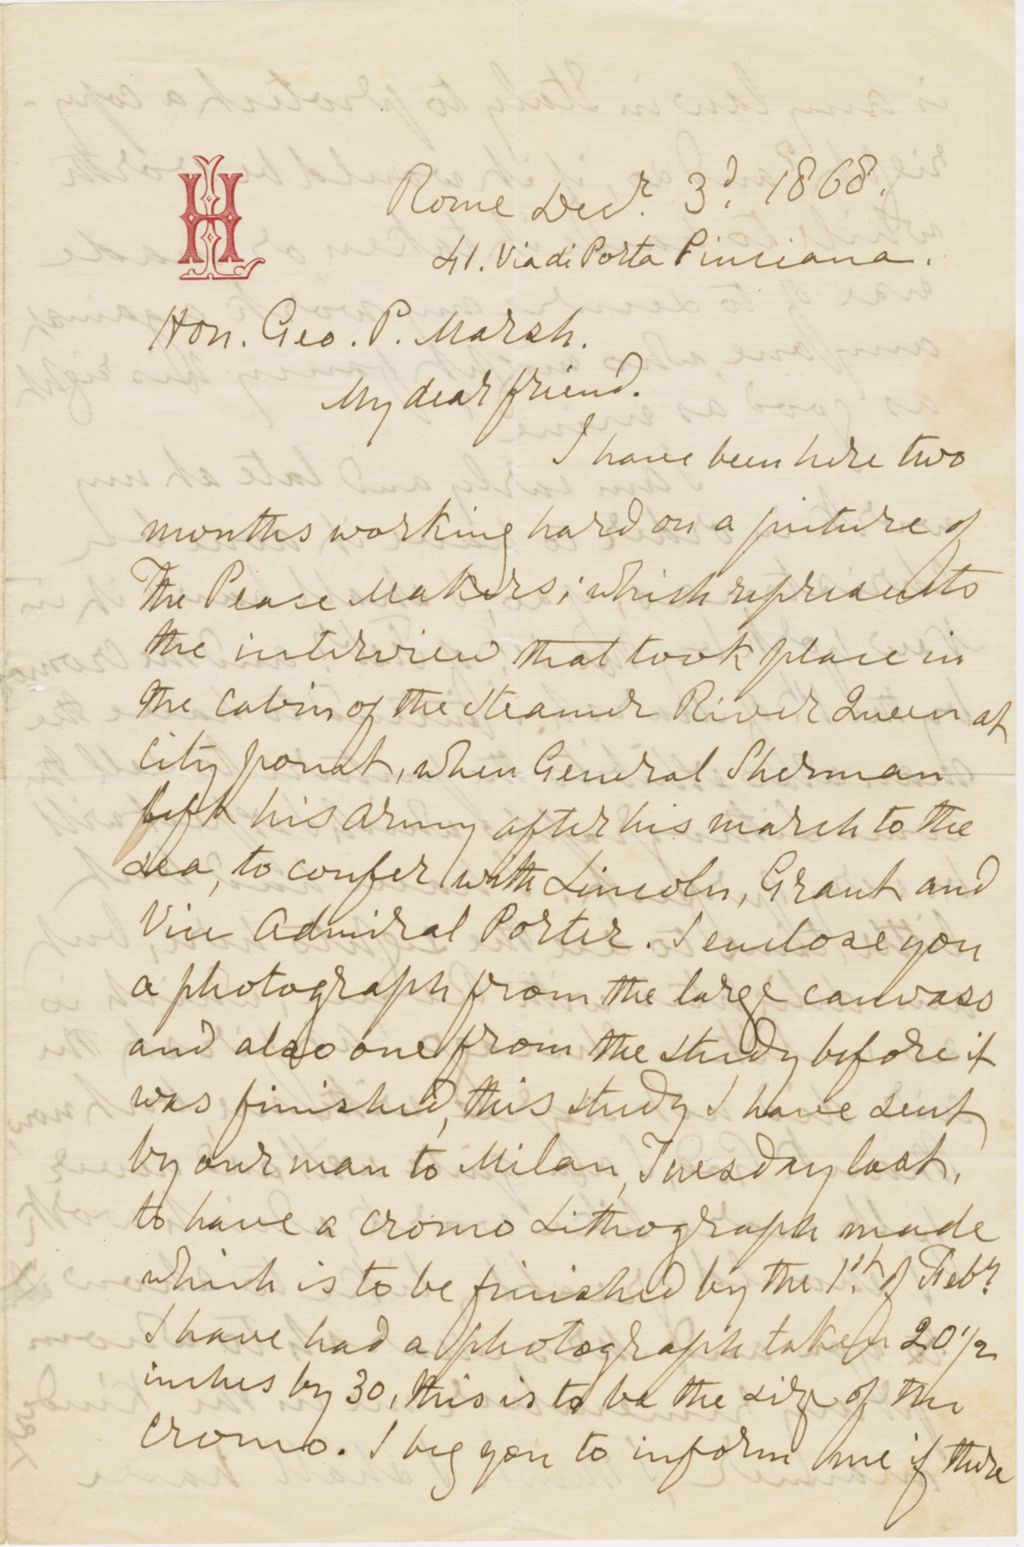 HL
Rome Decr. 3d. 1868.
41. Via di Porta Pinciana.
Hon. Geo. P. Marsh.
My dear friend.
I have been here two
months working hard on a picture of
The Peace Makers; which represents
the interview that took place in
the cabin of the Steamer River Queen at
City point, when General Sherman
left his army after his march to the
Sea, to confer with Lincoln, Grant and
Vice Admiral Porter. I enclose you
a photograph from the large canvass
and also one from the study before it
was finished, this study I have sent
by our man to Milan, Tuesday last,
to have a cromo Lithograph made
which is to be finished by the 1st. of Feby.
I have had a photograph taken 20 1/2
inches by 30, this is to be the size of the
cromo. I beg you to inform me if there